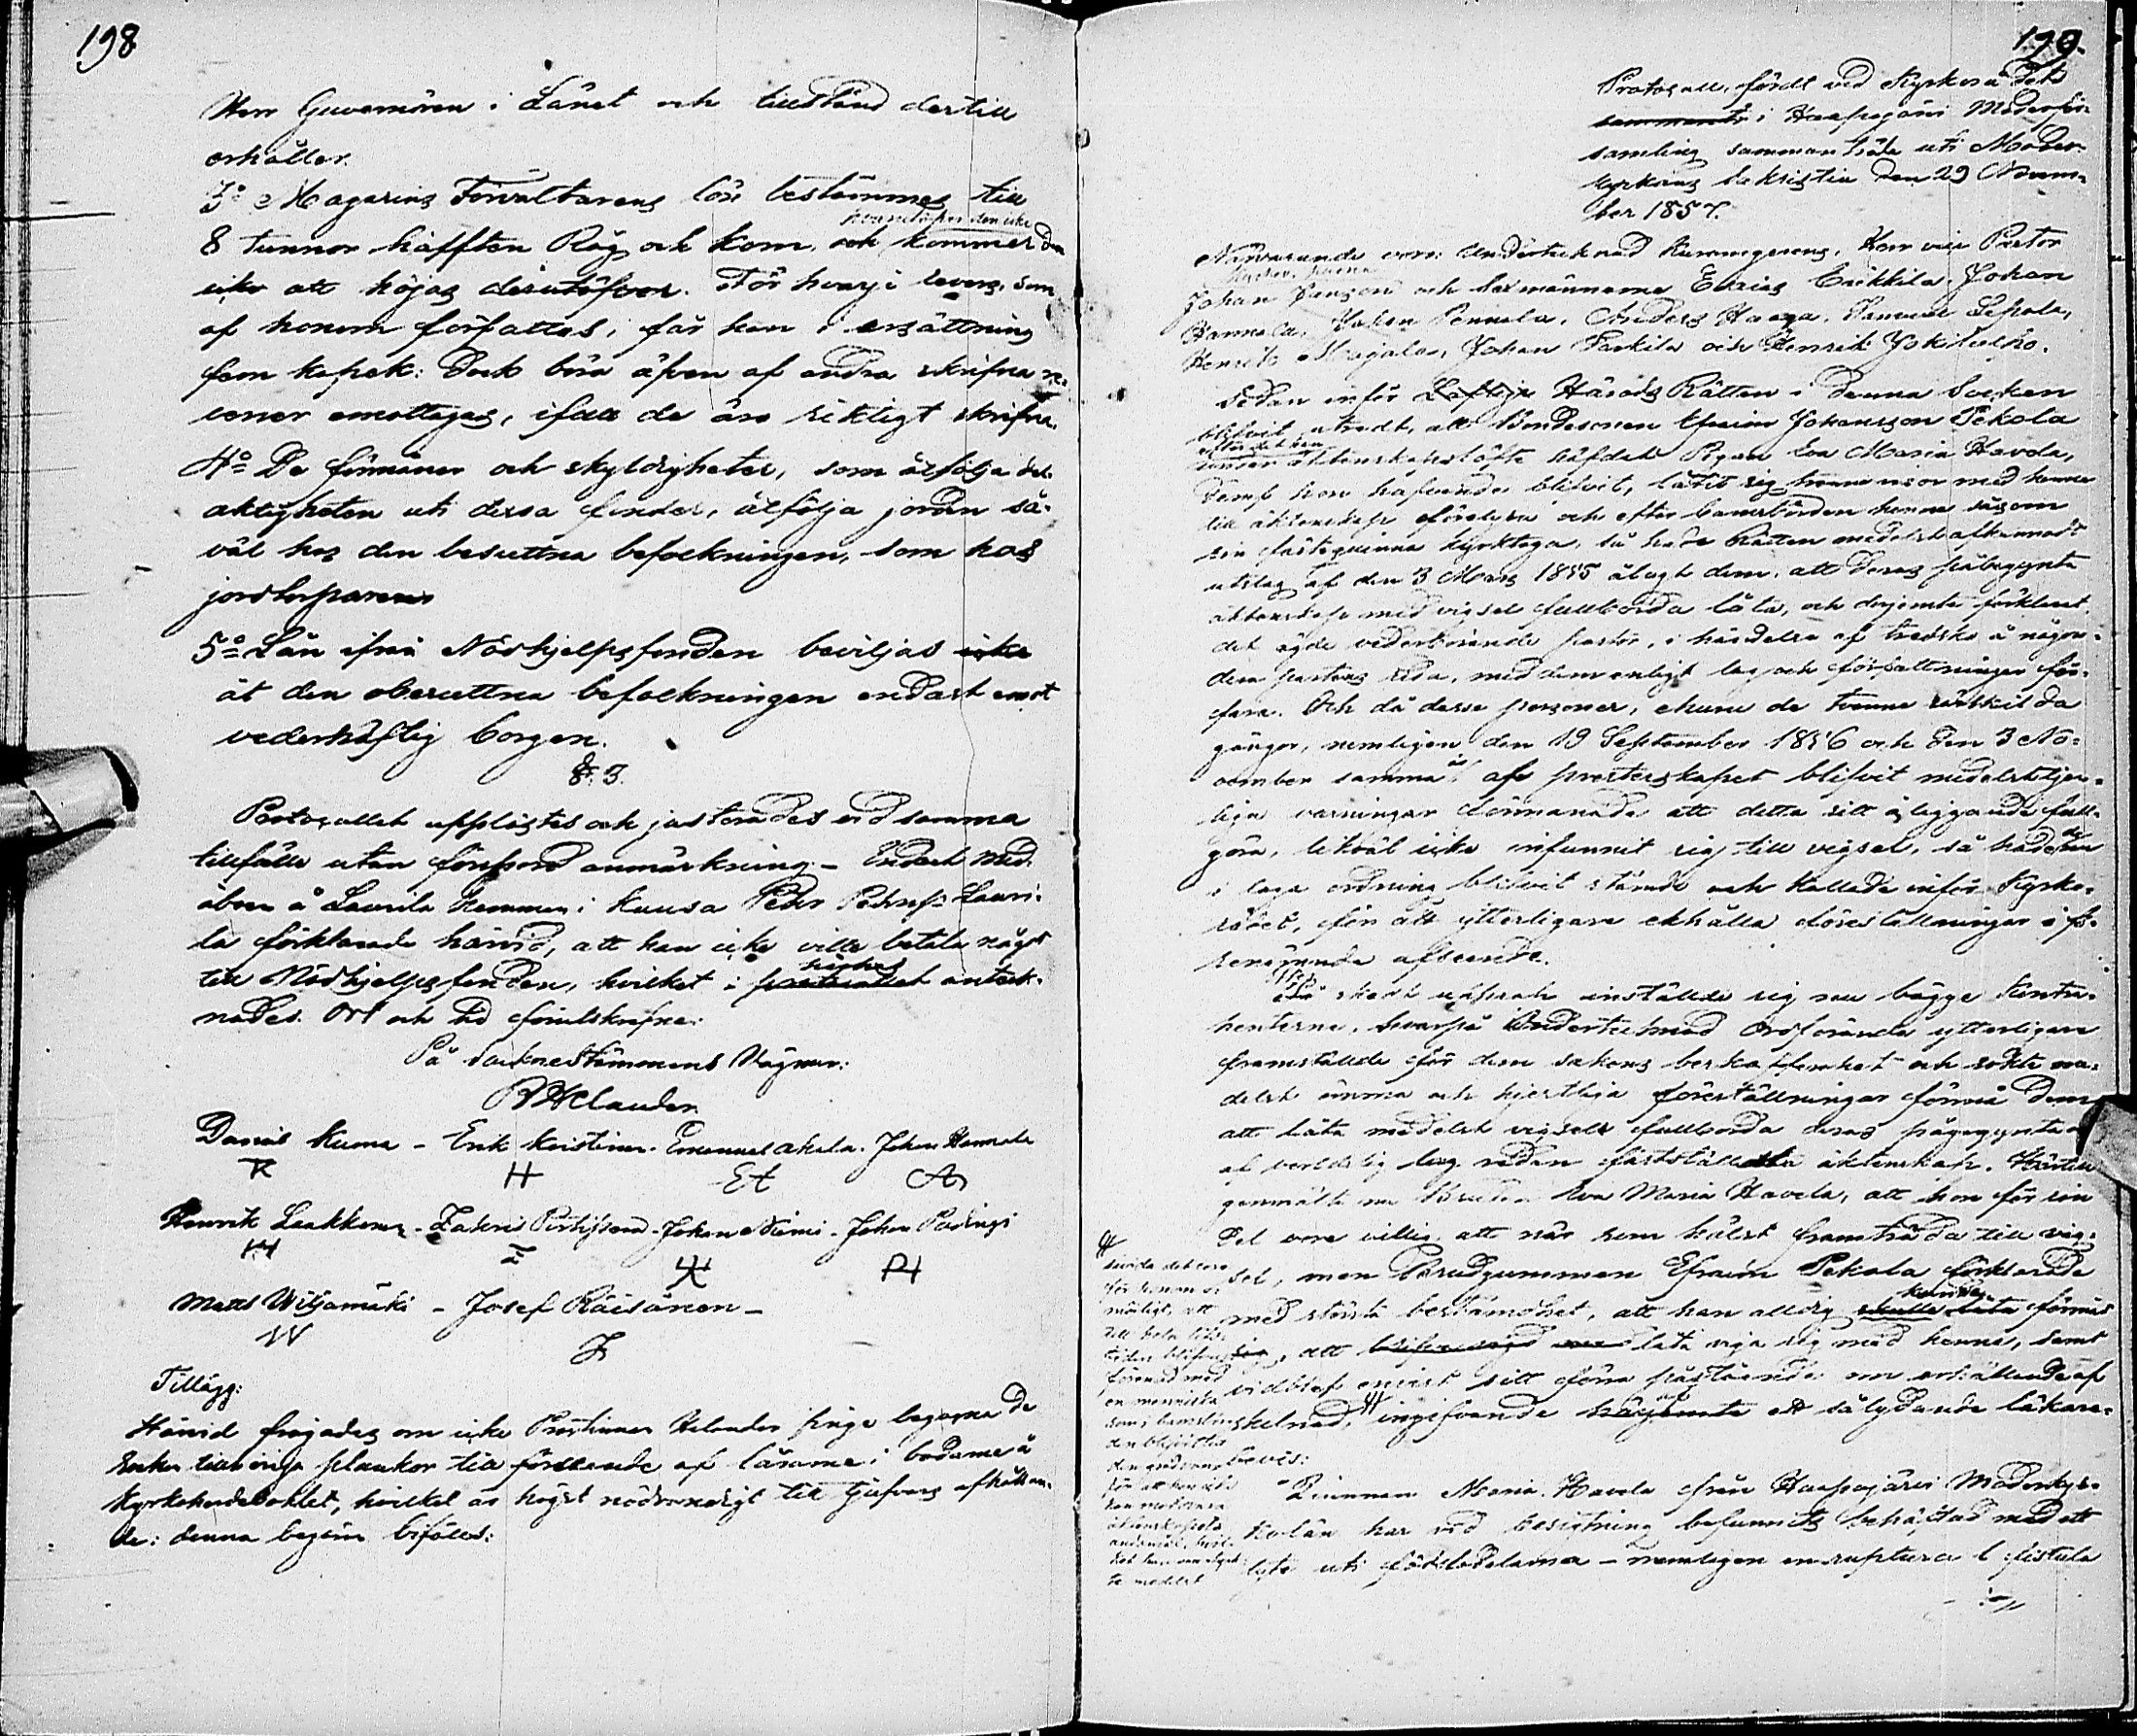 198
Herr Guvernören i Länet och tillstånd dertill
erhåller.
3o Magasins Förvaltarens lön bestämmes till
hvarutöfver den icke
8 tunnor hälften Råg och korn, och kommer den
icke att höjas derutöfver. För hvarje revers, som
af honom författas, får han i ersättning
fem kopek: Dock böra äfven af andra skrifna re-
verser emottagas, ifall de äro riktigt skrifna.
4o De förmåner och skyldigheter, som åtfölja del-
aktigheten uti dessa fonder, åtfölja jorden så-
väl hos den besuttna befolkningen, som hos
jordtorparena
5o Lån ifrån Nödhjelpsfonden beviljas icke
åt den obesuttna befolkningen endast emot
vederhäftig borgen.
§. 3.
Protocollet upplästes och justerades vid samma
tillfälle utan förspord anmärkning – Endast Med-
åbon å Laurila hemman i Kuusa Petter Pehrss. Lauri-
la förklarade härvid, att han icke ville betala något
till Nödhjelpsfonden, hvilket i protocollet anteck-
nades. Ort och tid förutskrifne:
På Sockenstämmans Vägnar:
Helander
Daniel Kuma – Erik Kristinen. Emanuel Akala. Johan Hannula
K H EA
Henrik Laakkonen – Zakris Pirttijoend – Johan Niemi – Johan Paolingi
H Z
Matts Wiljamäki – Josef Räisänen –
W J
Tillägg:
Härvid frågades om icke Prostinnan Helander finge begagna de
till förseende af lårarne i bodarne å
Kyrkoherdebohlet, hvilket är högst nödvändigt till tjufvars afhållan-
de: denna begäran biföll.s:
199.
Protocoll, fördt vid Kyrkorådets
sammantr i Haapajärvi Moderför-
samling sammanträde uti Moder-
kyrkans Sakristia den 29 Novem-
ber 1857.
Närvarande voro: Undertecknad Kummgerens, Herr vice Pastor
Johan Janzon och Sexmännerne Elias Erikkila, Johan
Hannula, Johan Pennala, Anders Haaga, Samuel Sepola,
Henrik Majala, Johan Parkila och Henrik Jokitulppo.
Sedan inför Loflige Härads Rätten i denna Socken
blifvit utredt, att Bondesonen Efraim Johansson Pekola
under äktenskapslöfte häfdat Pigan Eva Maria Havela,
samt hon hafvande blifvit, låtit sig trenne resor med henne
till äktenskap förelysa och efter barnsbörden henne såsom
sin fästeqvinna kyrktaga, så hade Rätten medelst afkunnadt
utslag af den 3 Mars 1855 ålagt dem, att deras påbegynta
äktenskap med vigsel fullborda låta, och derjemte förklarat
det ägde vederbörande pastor, i händelse af tredska å någon-
dera partens sida, med dem enligt lag och författningar för-
fara. Och då desse personer, ehuru de tvenne särskilda
gånger, nemligen den 19 September 1856 och den 3 No-
vember samma år af presterskapet blifvit medelst tjen-
liga varningar förmanade att detta sitt åliggande full-
göra, likväl icke infunnit sig till vigsel, så hade de nu
i laga ordning blifvit stämde och kallade inför Kyrko-
rådet, för att ytterligare erhålla föreställningar i fö-
renämnde afseende.
På skedt upprop inställde sig nu bägge Kontra-
henterne, hvarpå Undertecknad Ordförande ytterligare
framställde för dem sakens beskaffenhet och sökte me-
delst ömma och hjertliga föreställningar förmå dem
att låta medelst vigsel fullborda deras påbegynta
af verldslig lag redan fastställda äktenskap. Härtill
genmälte nu Bruden Eva Maria Havela, att hon för sin
del vore villig, att när som hälst framträda till vig-
sel, men Brudgummen Efraim Pekola förklarade
med största bestämdhet, att han aldrig skulle låta förmå
sig, att låta viga sig med henne, samt
vidblef envist sitt förra påstående om erhållande af
skelnad, ingifvande ett så lydande läkare-
bevis:
såvida det vore
för honom o-
möjligt, att
till hela lifs-
tiden blifva
förenad med
en menniska
"Qvinnan Maria Havela från Haapajärvi Moderkyr-
kolän har vid besigtning befunnits behäftad med ett
lyte uti födslodelarna – nemligen en ruptura l fistula